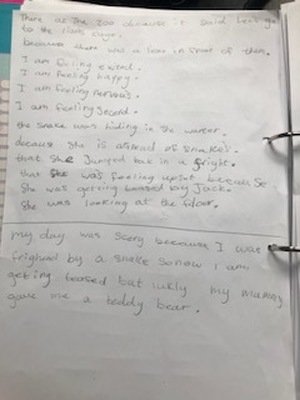 There at The zoo because it said let's go
to the lions cage.
because there was a lion in front of them.
I am filing exited.
I am feeling happy.
I am feeling nervous.
I am feeling Scored.
the snake was hiding in the warter.
decause she is afraed of snakes.
that she Jumped bak in a fright.
that she was feeling upset because
She was getting teased by Jack.
She was looking at the floor.
my day was scery because I was
frighend by a snake so now I am
geting teased but lukly my mummy
gave me a teddy bear.